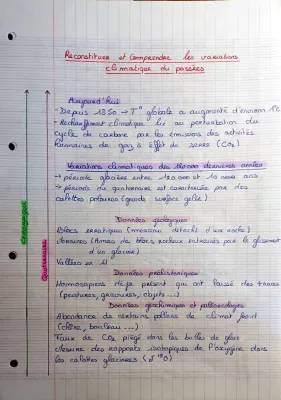 Reconstituer et Comprendre les variations
climatique du passées
Aujourd'hui
- Depuis 1850 → T° globale a augmenté d'environ 1°C
- Rechauffement climatique lié au perturbation du
cycle de carbone par les émissions des activités
humaines de gaz à effet de serre (CO2)
Variations climatiques des 120 000 dernières années
→ période glacière entre 120 000 et 10 000 ans
→ période du quaternaire est caractérisée par des
calottes polaires (grande surface gelée)
Données géologiques
Blocs erratiques (morceau détaché d'une roche)
Moraines (Amas de blocs rocheux entrainés par le glissement
d'un glacier)
Vallées en U
Données préhistoriques
Homosapiens déjà présent qui ont laissé des traces
(peintures, gravures, objets ...)
Données géochimiques et paléoécologiques
Abondance de certains pollens de climat froid
(chêne, bouleau ...)
Taux de CO2 piégé dans les bulles de glace
Mesure des rapports isotopiques de l'oxygène dans
les calottes glacières (δ18O)
Quaternaire